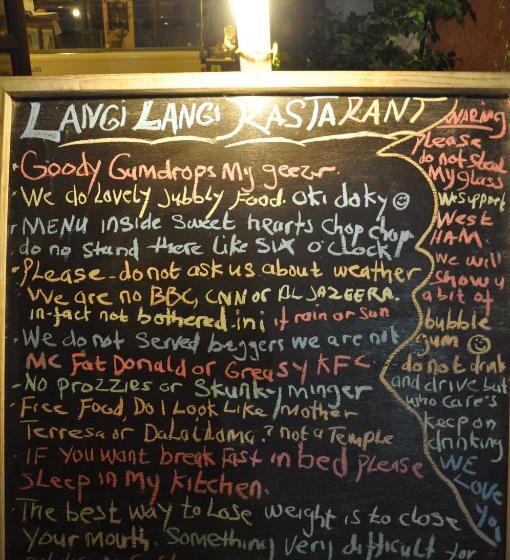 LANGI LANGI RASTARANT
Goody Gumdrops My geezer.
We do Lovely Jubbly Food. oki doky
MENU inside Sweet hearts chop chop
do no stand there like SIX o'clock
Please do not ask us about weather
We are no BBC, CNN or AL JAZEERA.
in-fact not bothered ini if rain or sun
We do not Served beggers we are not
Mc Fat Donald or Greasy KFC
No prozzies or Skunky minger
Free Food, Do I Look Like Mother
Terresa or DaLai Lama? not a Temple
IF YOU want break fast in bed please
Sleep in My kitchen.
The best way to Lose weight is to close
Your mouth. Something very difficult for
WARING
Please
do not steal
My glass
We support
West
HAM.
we will
show u
a bit of
bubble
gum
do not drink
and drive but
who care's
keep on
drinking
WE
LOVE
You